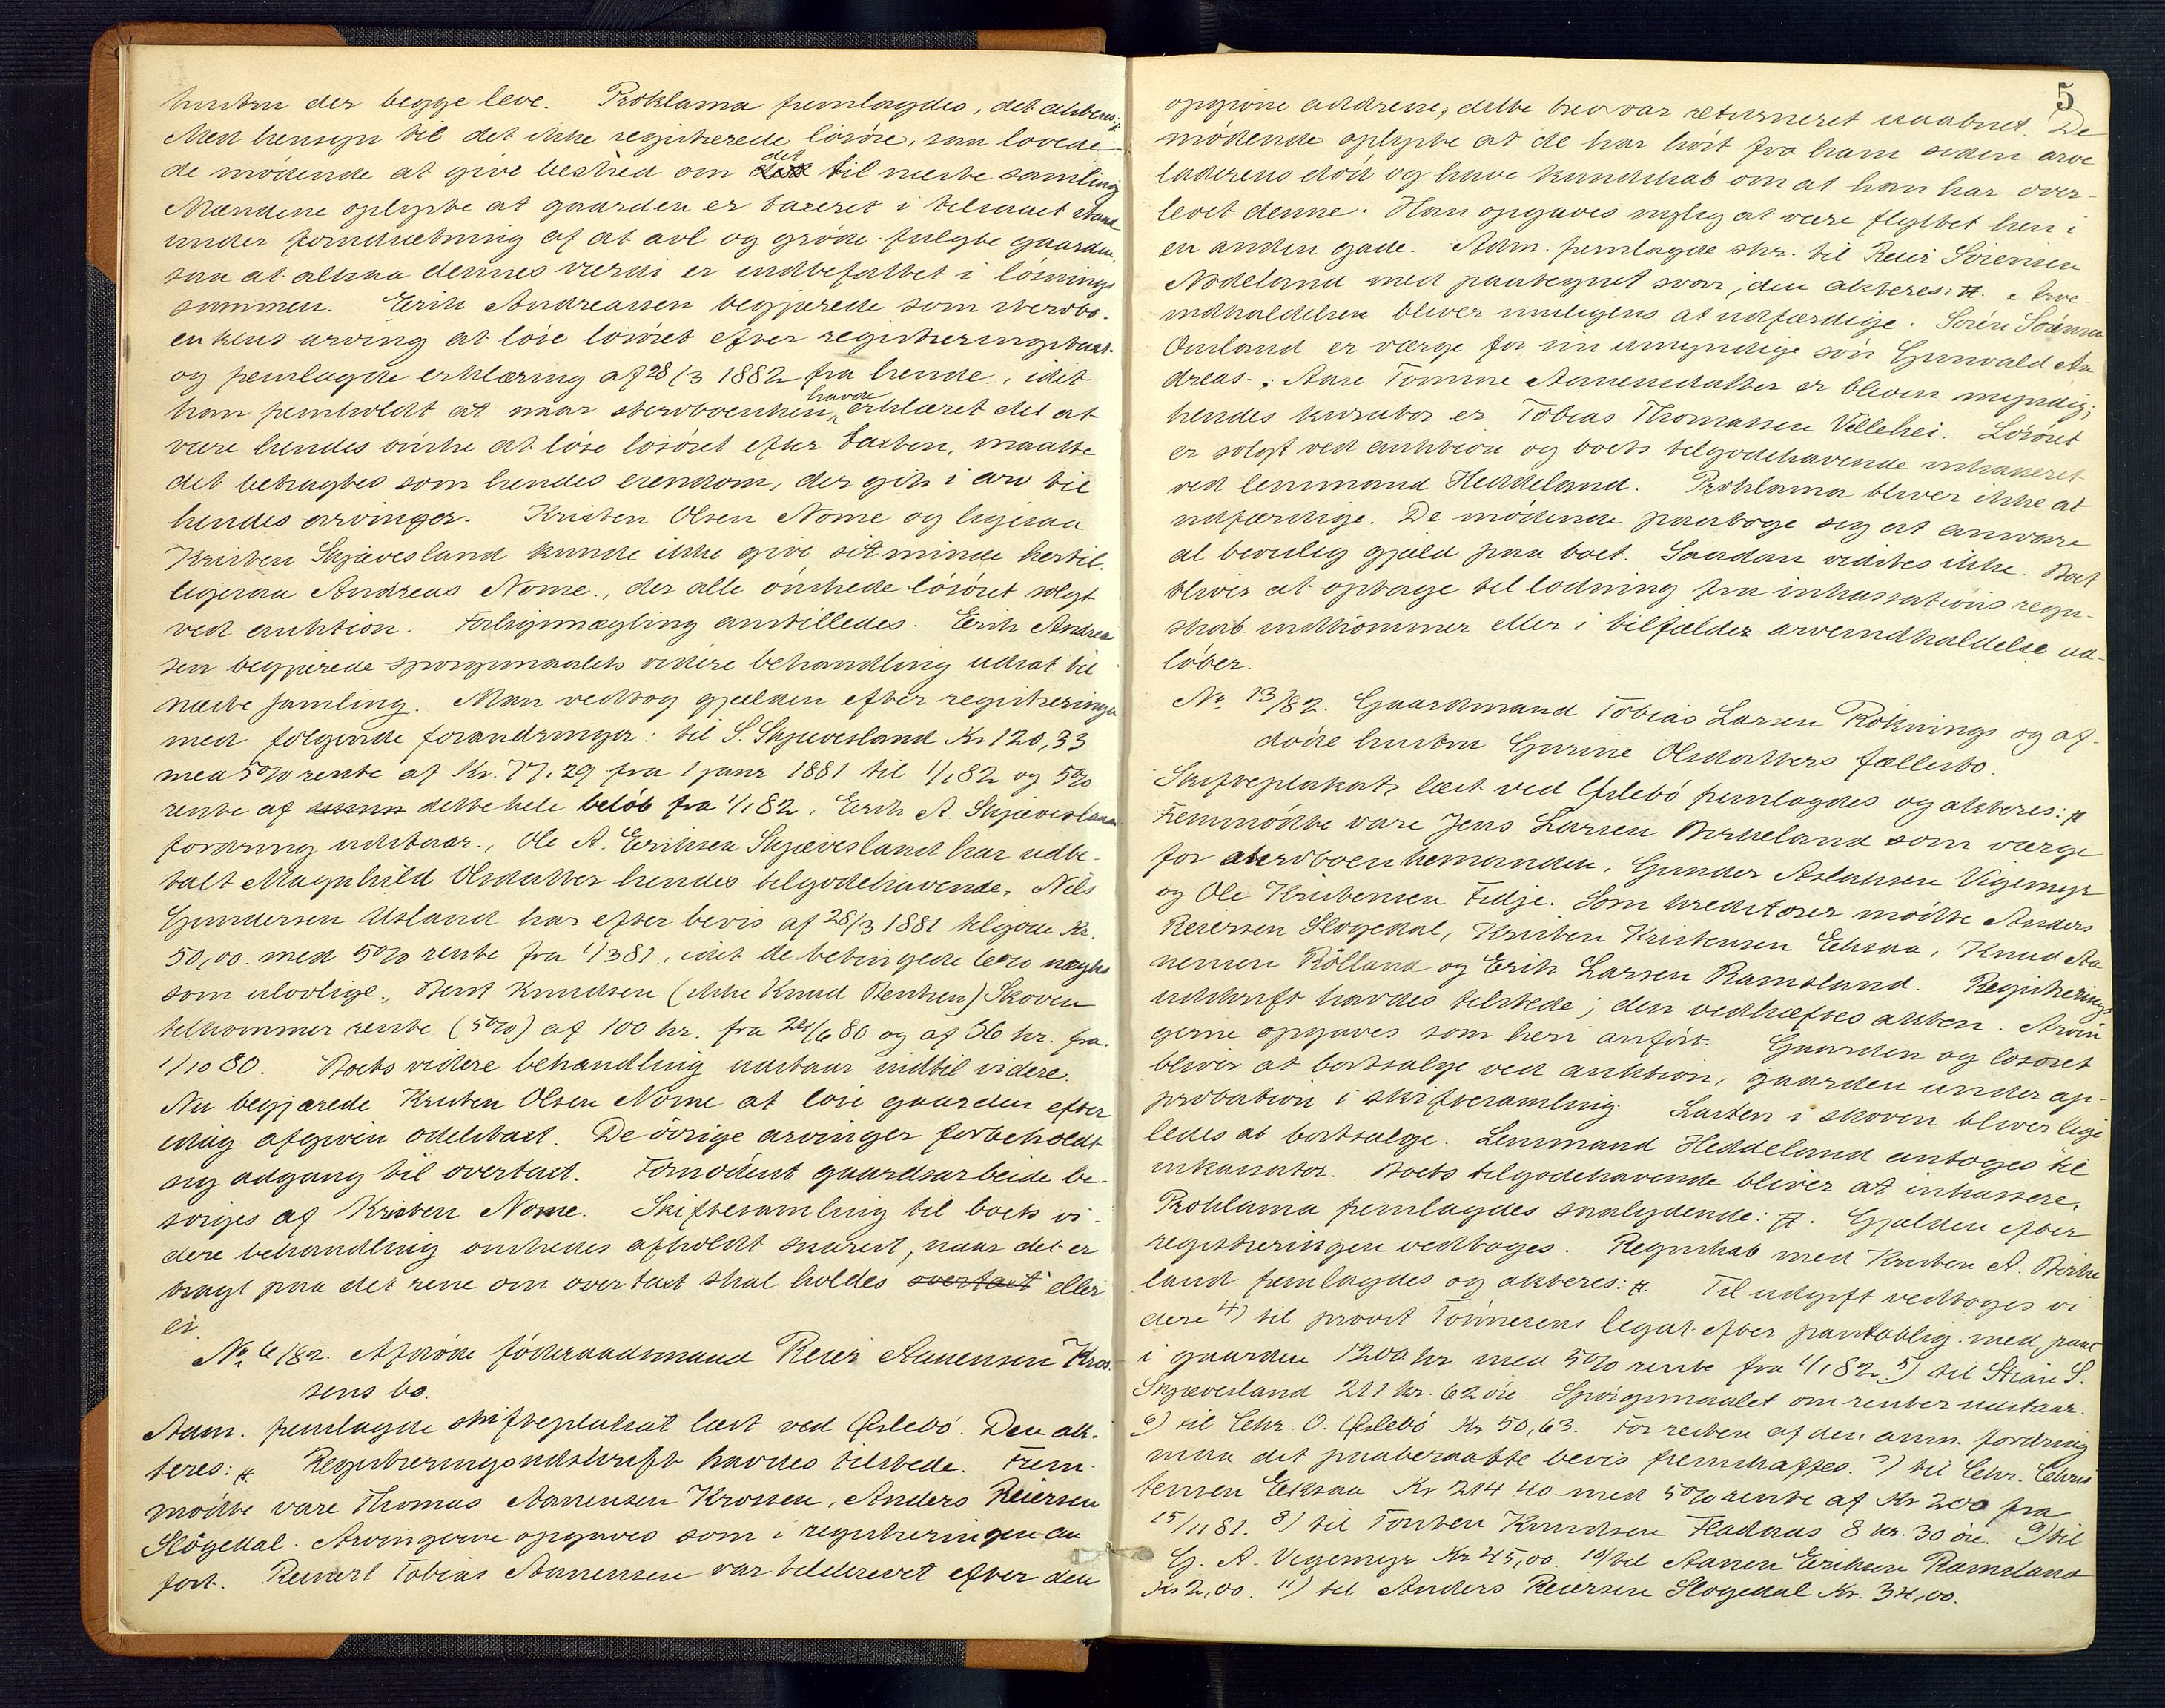 hustru der begge leve. Proklama fremlagdes, det akteres: #
Med hensyn til det ikke registrerede lösöre, saa lovede
de mödende at give beskred om det til næste samling
Mændene oplyste at gaarden er taxeret i tilsaaet stand
under forudsætning af at avl og gröde fulgte gaarden,
saa at altsaa dennes værdi er indbefattet i lösnings
summen. Erik Andreassen begjærede som stervbo-
enkens arving at löse lösöret efter registreringstaxt.
og fremlagde erklæring af 28/3 1882 fra hende, idet
han fremholdt at naar stervboenken havde erklæret det at
være hendes önske at löse lösöret efter taxten, maatte
det betragtes som hendes eiendom, der gik i arv til
hendes arvinger. Kristen Olsen Nome og ligesaa
Kristen Skjævesland kunde ikke give sit minde hertil.
ligesaa Andreas Nome, der alle önskede lösöret solgt
ved auktion. Forligsmægling anstilledes. Erik Andreas
sen begjærede spörgsmaalets videre behandling udsat til
næste samling. Man vedtog gjælden efter registreringen
med fölgende forandringer: til S. Skjævesland Kr 120,33
med 5% rente af Kr. 77,29 fra 1 janr 1881 til 1/1 82 og 5%
rente af dette hele belöb fra 1/1 82. Erik A. Skjævesland
fordring udstaar., Ole A. Eriksen Skjævesland har udbe-
talt Magnhild Olsdatter hendes tilgodehavende, Nils
Gundersen Usland har efter bevis af 28/3 1881 tilgode Kr.
50,00. med 5% rente fra 1/3 81, idet de betingede 6% nægtes
som ulovlige., Bent Knudsen (ikke Knud Bentsen) Skoven
tilkommer rente (5%) af 100 kr. fra 24/6 80 og af 56 kr. fra
1/10 80. Boets videre behandling udstaar indtil videre.
Nu begjærede Kristen Olsen Nome at löse gaarden efter
idag afgiven odelstaxt. De övrige arvinger forbeholdt
sig adgang til overtaxt. Fornödent gaardsarbeide be-
sörges af Kristen Nome. Skiftesamling til boets vi-
dere behandling önskedes afholdt snarest, naar det er
bragt paa det rene om overtaxt skal holdes overtaxt eller
ei.
No 6/82. Afdöde föderaadsmand Reier Aanensen Kros-
sens bo.
Adm. fremlagde skifteplakat læst ved Öslebö. Den ak-
teres: # Registreringsudskrift havdes tilstede. Frem-
mödte vare Thomas Aanensen Krossen, Anders Reiersen
Slögedal. Arvingerne opgaves som i registreringen an
fört. Reinert Tobias Aanensen var tilskrevet efter den
5
opgivne addresse, dette brev var returneret uaabnet. De
mödende oplyste at de har hört fra ham siden arve
laderens död og have kundskab om at han har over-
levet denne. Han opgaves nylig at være flyttet hen i
en anden gade. Adm. fremlagde skr. til Reier Sörensen
Nodeland med paategnet svar, den akteres: #. Arve-
indkaldelsen bliver muligens at udfærdige. Sören Sörensen
Ousland er værge for sin umyndige sön Gunvald An
dreas. Aase Tomine Aanensdatter er bleven myndig;
hendes kurator er Tobias Thomassen Vellehei. Lösöret
er solgt ved auktion og boets tilgodehavende inkasseret
ved lensmand Heddeland. Proklama bliver ikke at
udfærdige. De mödende paatoge sig at answare
al bevislig gjæld paa boet. Saadan vidstes ikke. Boet
bliver at optage til lodning fra inkassations regn-
skab indkommer eller i tilfælde arveindkaldelse ud-
löber.
No 13/82. Gaardmand Tobias Larsen Röknings og af-
döde hustru Gurine Olsdatters fællesbo.
Skifteplakat, læst ved Öslebö fremlagdes og akteres: #
Fremmödte vare Jens Larsen Birkeland som værge
for stervboenkemanden, Gunder Aslaksen Vigemyr
og Ole Kristensen Fidje. Som kreditorer mödte Anders
Reiersen Slogedal, Kristen Kristensen Eksaa, Knud Aa
nensen Rölland og Erik Larsen Ramsland. Registrerings
udskrift havdes tilstede; den vedhæftes akten. Arvin
gerne opgaves som heri anfört. Gaarden og lösöret
bliver at bortsælge ved auktion, gaarden under ap-
probation i skiftesamling. Lasten i skoven bliver lige
ledes at bortsælge. Lensmand Heddeland antoges til
inkassator. Boets tilgodehavende bliver at inkassere.
Proklama fremlagdes saalydende: #. Gjælden efter
registreringen vedtoges. Regnskab med Kristen A. Birke
land fremlagdes og akteres: #. Til udgift vedtoges vi
dere 4) til provst Tönnesens legat efter pantoblig. med pant
i gaarden 1200 kr med 5% rente fra 1/1 82. 5) til S.
Skjævesland 211 kr. 62 öre. Spörgsmaalet om renter udstaar.
6) til Chr. O. Öslebö Kr 50,63. For resten af den anm. fordring
maa det paaberaabte bevis fremskaffes. 7) til Chr. Chris
tensen Eksaa Kr 214 40 med 5% rente af Kr 200 fra
15/11 81. 8) til Torsten Knudsen Fladnas 8 kr. 30 öre. 9) til
G. A. Vigemyr Kr 45,00. 10) til Aanen Eriksen Ramsland
Kr 2,00. 11) til Anders Reiersen Slogedal Kr. 34,00.